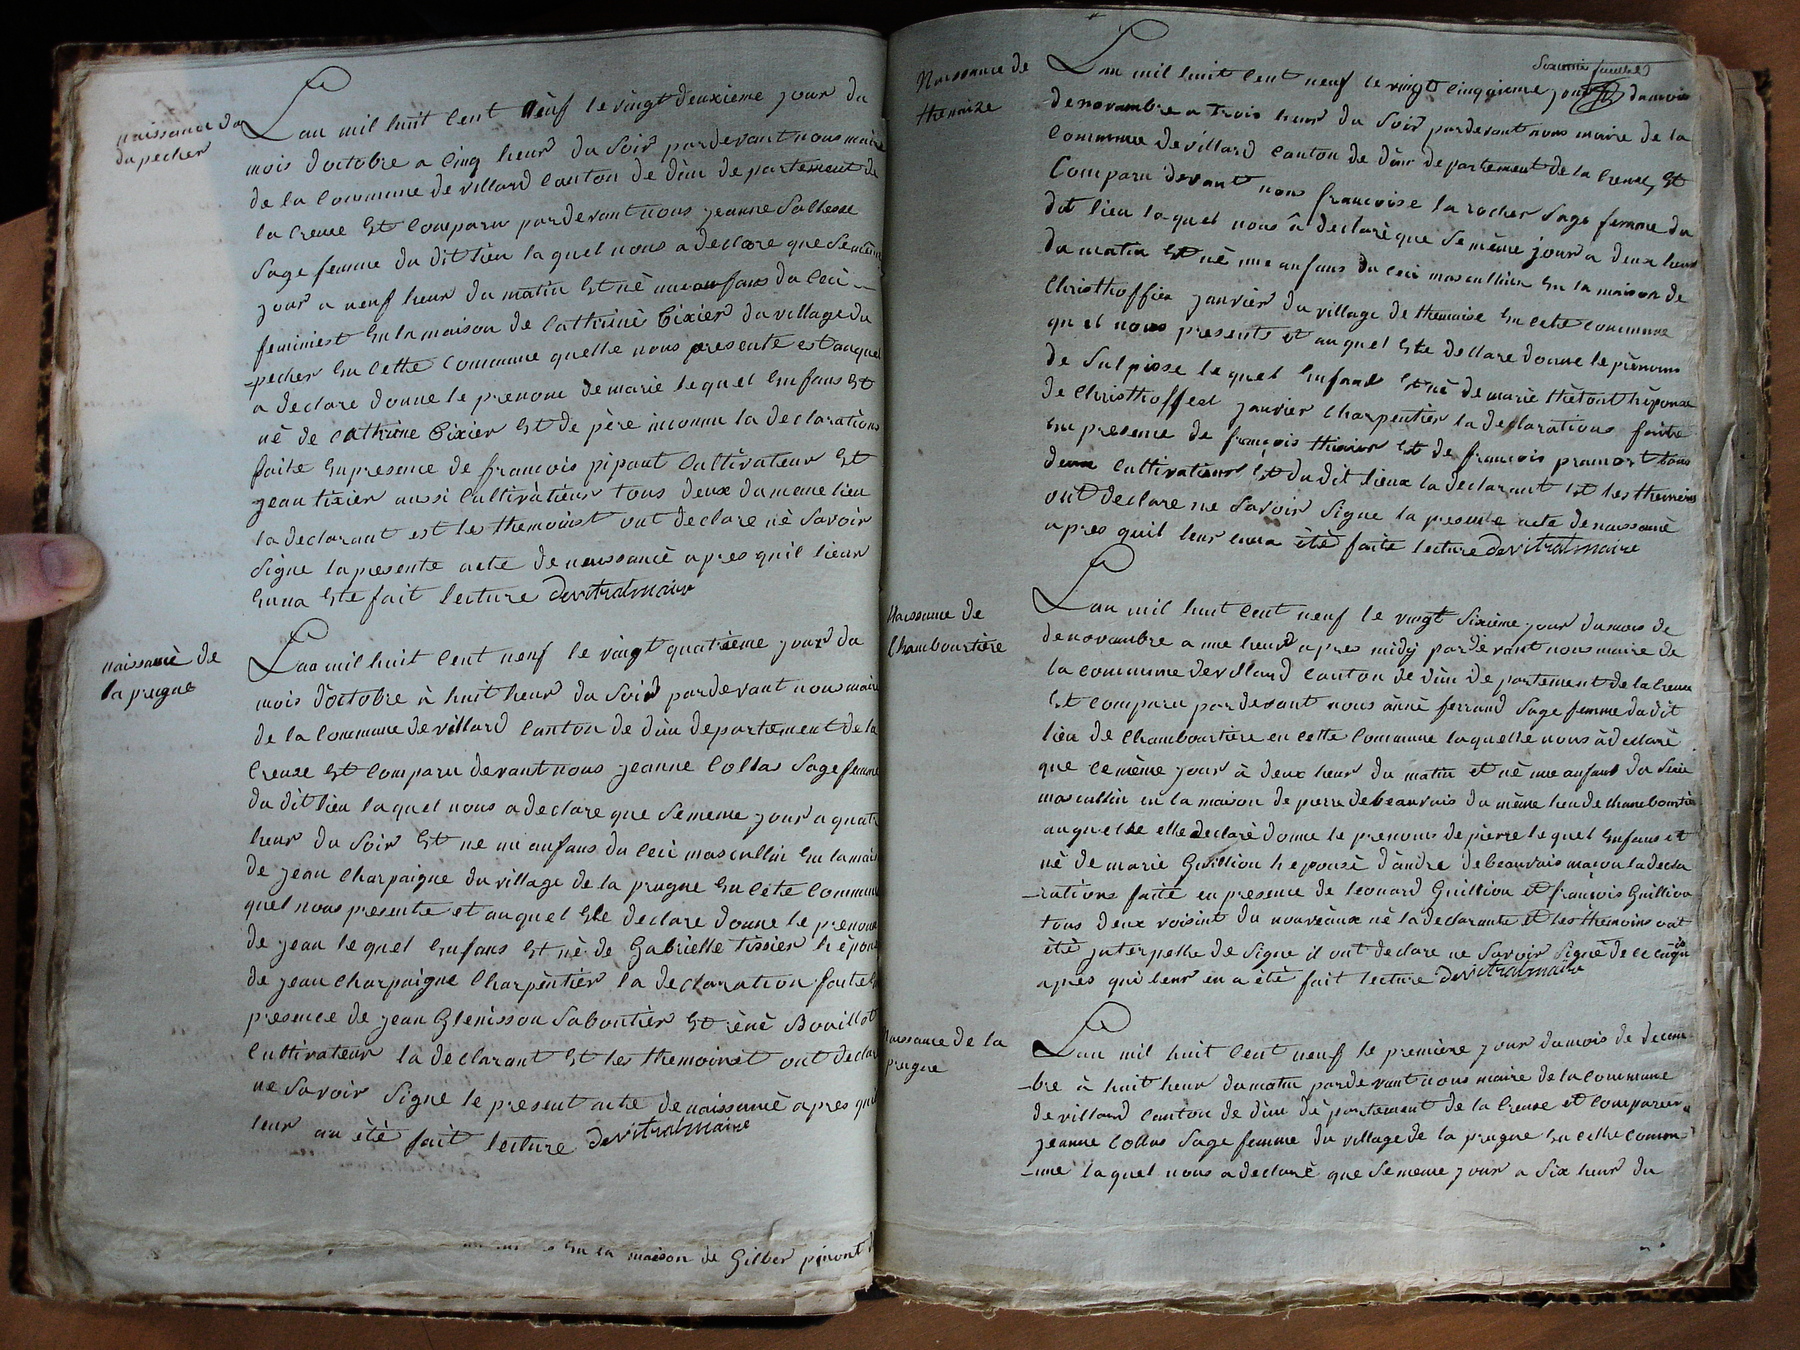 naissance du
du pecher
Lan mil huit Cent neuf le vingt deuxieme jour du
mois doctobre a Cinq heur du Soir pardevant nous maire
de la Commune de villard Canton de dun departement de
la Creuse Et Comparu pardevant nous jeanne
Sage femme du dit lieu laquel nous a declare que Semême
jour a neuf heur du matin Est nè une anfans du Ceci
feminiest En la maison de Cathrinè Tixier du village du
pecher En Cette Commune quelle nous presente est auquel
a declare donne le prenom de marie lequel Enfans Est
nè de Cathrine Tixier Et de père inconnu la declarations
faite En presence de francois pipaut Cultivateur Et
jean tixier aussi Cultivàteur tous deux du meme lieu
la declarant est les themoinst ont declare nè Savoir
Signe la presente acte de naissancè apres quil lieur
Enna Ete fait lecture devitralmaire
naissancè de
la prugne
Lan mil huit Cent neuf le vingt quatrieme jour du
mois doctobre à huit heur du Soir pardevant nous maire
de la Commune de villard Canton de dun departement de la
Creuse Et Comparu devant nous jeanne Collas Sage femme
du dit lieu laquel nous a declare que Sememe jour a quatr
heur du Soir Et ne un anfans du Ceci mascullin En la maison
de jean Charpaigne du village de la prugne En Cete Commun
quel nous presente et auquel Ele declare donne le prenom
de jean lequel Enfans Et nè de Gabrielle tissier
de jean Charpaigne Charpèntier la declaration faite
presence de jean Glenisson Saboutier Et rènè Bouillot
Cultivateur la declarant Et les themoinst ont declar
ne Savoir Signe le present acte de naissancè apres qui
leur an étè fait lecture devitralmaire
En la maison de Gilber
Sixieme feuillet
Naissance de
themaize
Lan mil huit Cent neuf le vingt Cinquieme jour du mois
de novembre a Trois heur du Soir pardevant nous maire de la
Commune de villard Canton de dun departement de la Creuse Et
Comparu devant nous francoise la rocher Sage femme du
dit lieu laquel nous à declarè que Se mème jour a deux heur
du matin Et nè une anfans du Ceci mascullin En la maison de
Christhoffier janvier du village de themaise En Cete Commune
quel nous presents et auquel Ele declare donne le prènoms
de Sulpisse lequel Enfand Et nè de marie
de Christhoffeel janvier Charpentier la declarations faite
En presence de françois Et de françois tous
deux Cultivateurs Et du dit lieux la declarant Et les themoins
ont declare ne Savoir Signe la presente acte de naissancè
apres quil leur enna étè faite lecture devitralmaire
Naissance de
Chambourtiere
Lan mil huit Cent neuf le vingt Sixième jour dumois de
de novembre a une heur apres midy pardevant nous maire de
la commune de villard Canton de dun departement de la Creuse
Et Comparu pardevant nous ànnè ferrand Sage femme du dit
lieu de Chambourtiere en cette Commune laquelle nous à declarè
que Ce mème jour à deux heur du matin et nè une anfant du Sixe
mascullin en la maison de pierre debeauvais du mème lieu de Chambourtie
auquelle elle declarè donne le prenoms de pierre lequel Enfans et
nè de marie Guillion h epousè d'àndre debeauvais maçon la decla
-rations faite en presence de leonard Guillion et françois Guillion
tous deux voisint du nouvèaux nè la declarante et les themoins ont
été jnterpelle de Signe il ont declare ne Savoir Signè de ce enquis
apres qui leur en a été fait lecture devitralmaire
Naissance de la
prugne
Lan mil huit Cent neuf le première jour dumois de decem
-bre à huit heur du matin pardevant nous maire de la Commune
de villard Canton de dun dèpartement de la Creuse et Comparu
jeanne Collas Sage femme du village de la prugne En Cette Comm
-une laquel nous a declarè que Sememe jour a Six heur du